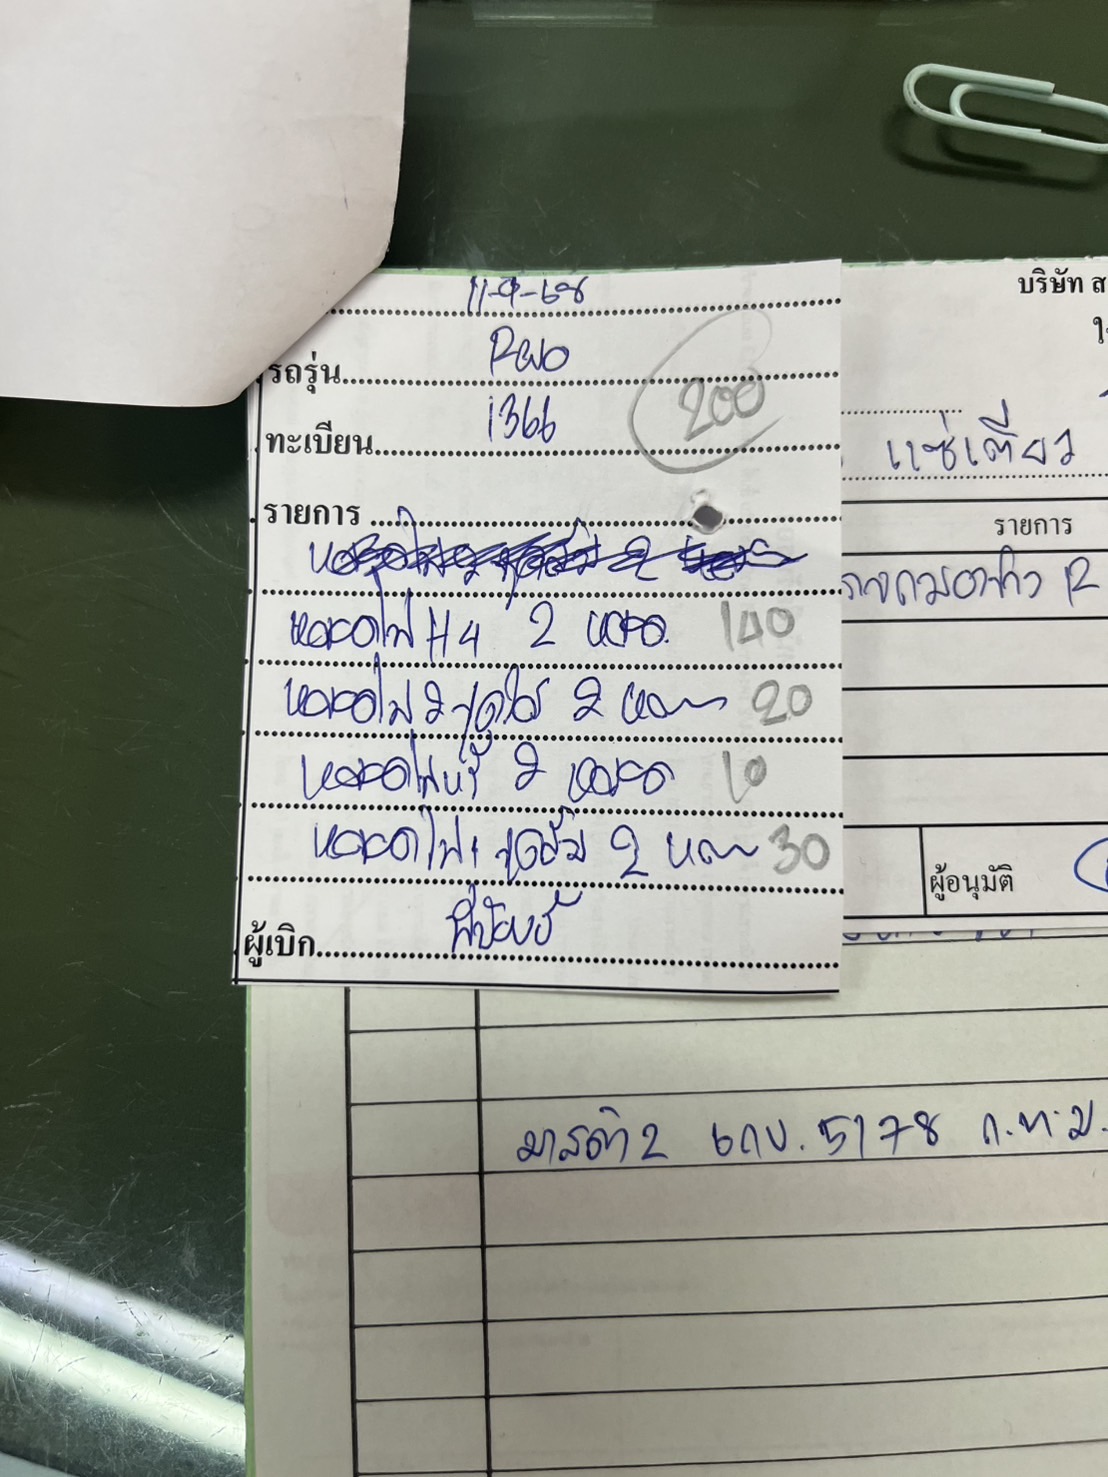 11-9-68
รถรุ่น Revo
ทะเบียน 1366
200
รายการ
หลอดไฟ H4 2 หลอด 140
หลอดไฟ 2 จุดใส 2 หลอด 20
หลอดไฟหรี่ 2 หลอด 10
หลอดไฟ 1 จุดส้ม 2 หลอด 30
ผู้เบิก
บริษัท ส
ใ
แซ่เตียว
รายการ
ผู้อนุมัติ
มาสด้า 2 6กข. 5178 ก.ท.ม.